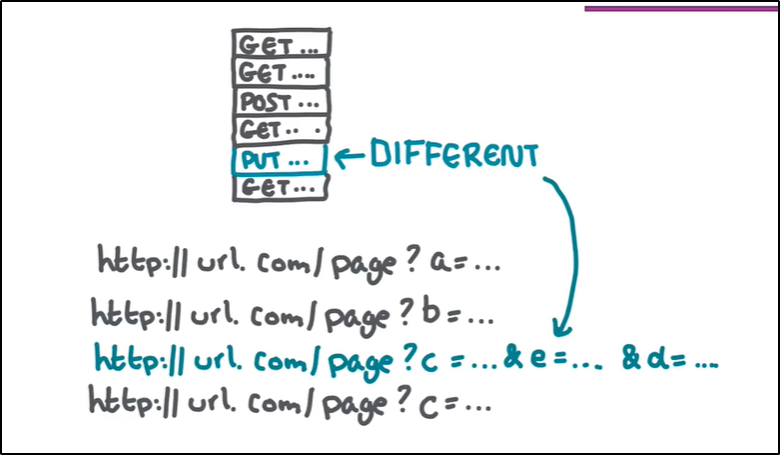 GET ...
GET ....
POST ...
GET .. .
PUT ... ← DIFFERENT
GET ...
http:// url. com/ page ? a = ...
http:// url. com/ page ? b = ...
http:// url. com/ page ? c = ... & e = ... & d = ...
http:// url. com/ page ? c = ...